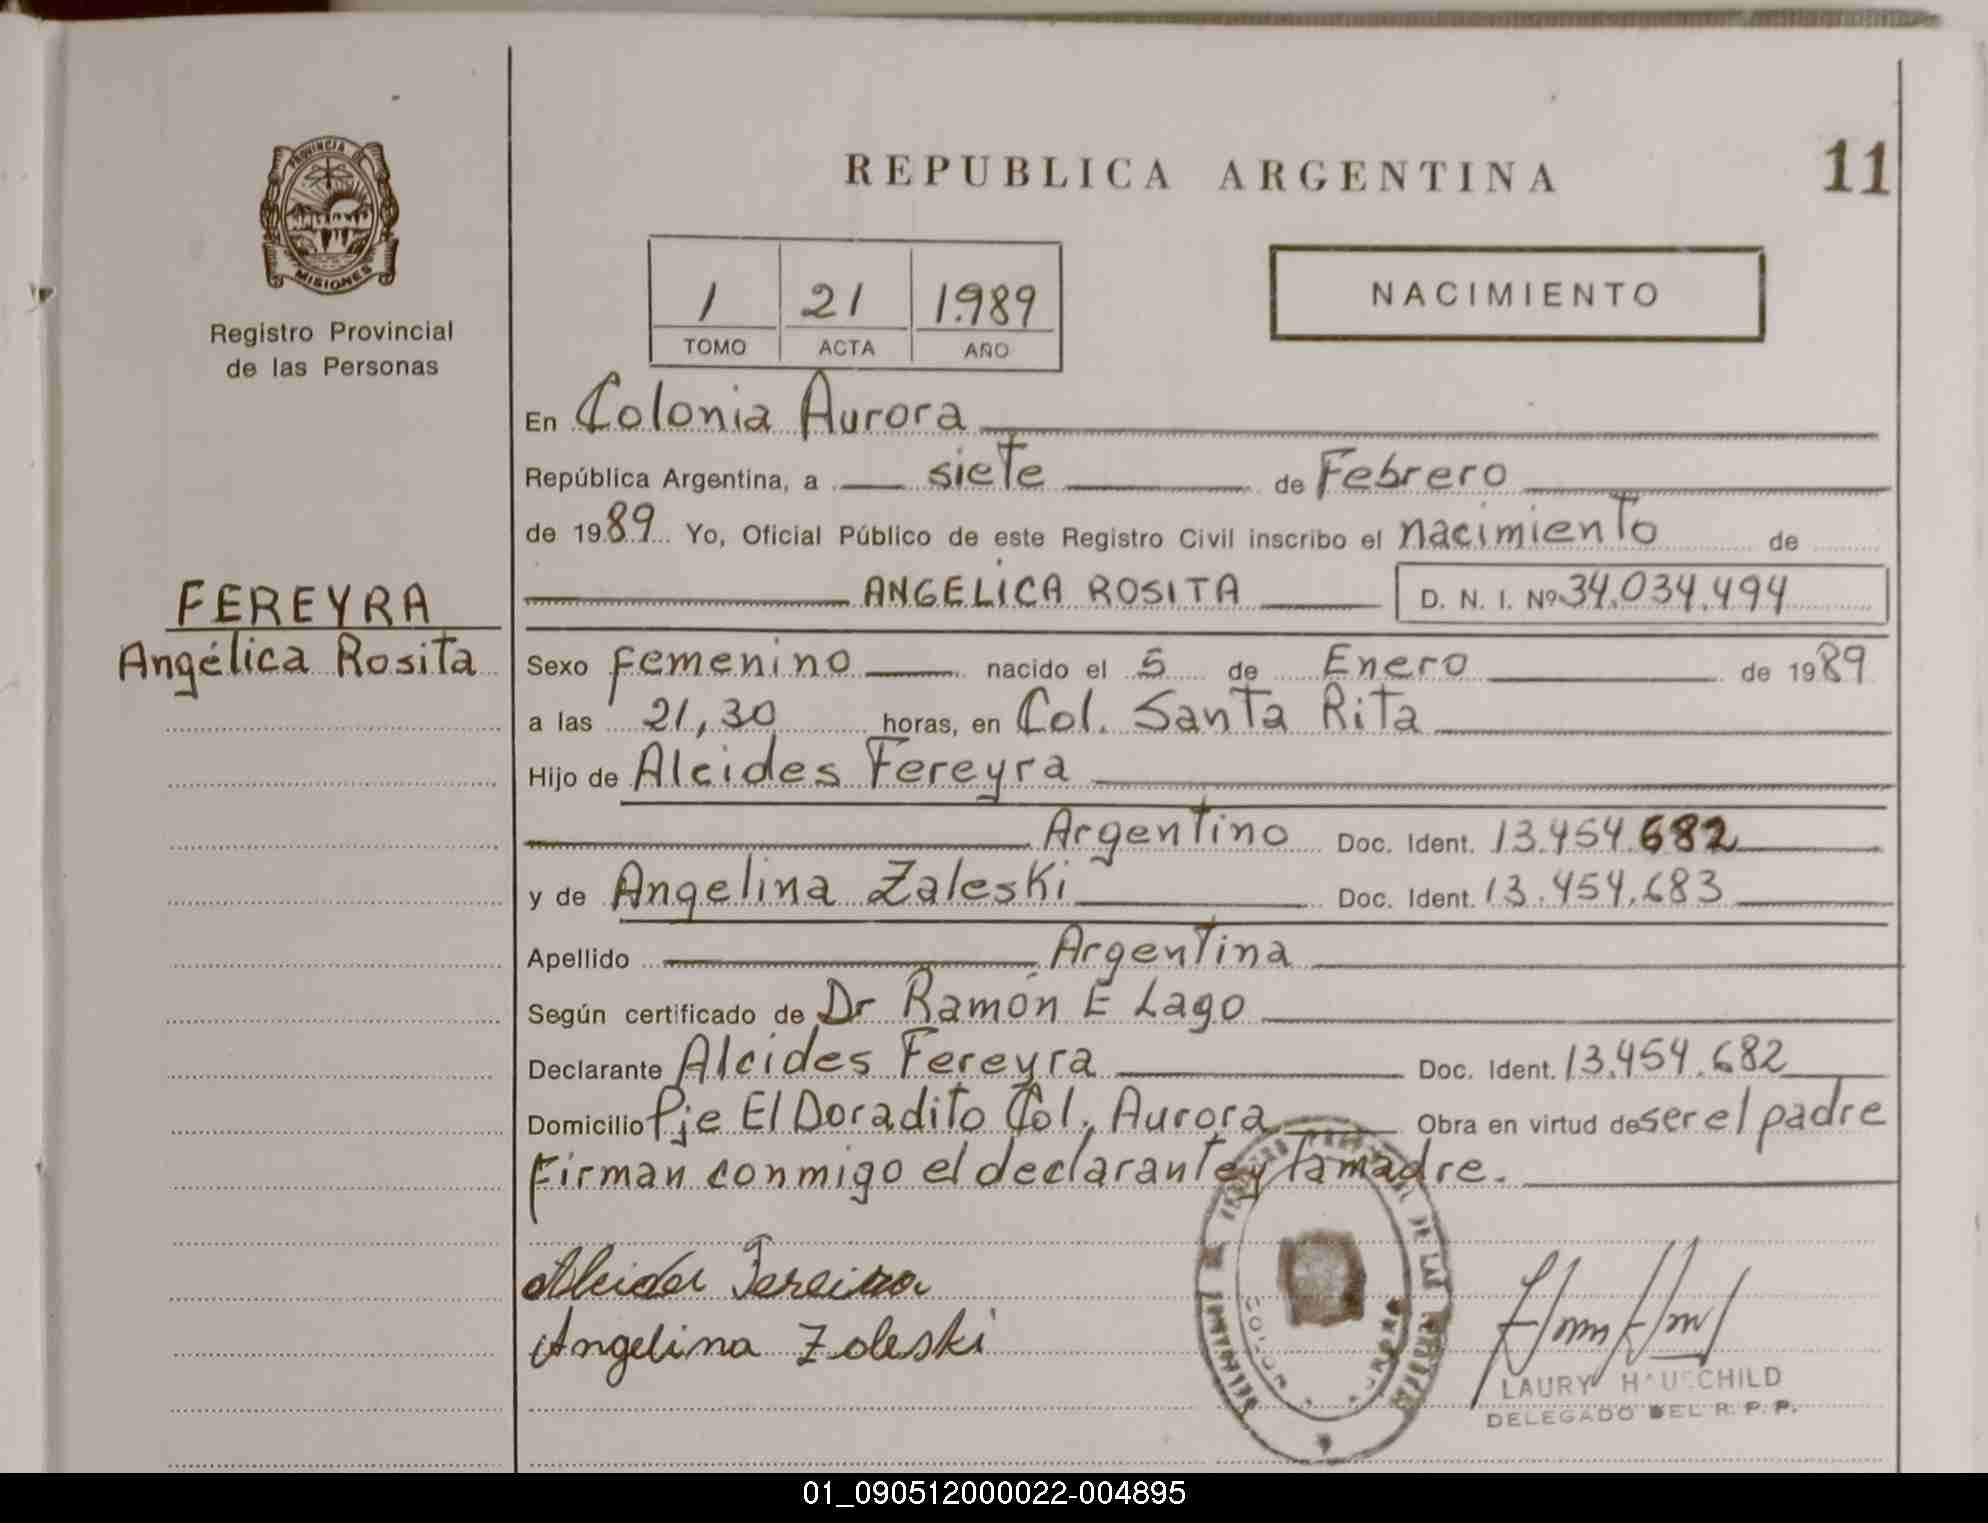 PROVINCIA DE
MISIONES
Registro Provincial
de las Personas
FEREYRA
Angélica Rosita
REPUBLICA ARGENTINA
11
1 21 1.989
TOMO ACTA AÑO
NACIMIENTO
En Colonia Aurora
República Argentina, a siete de Febrero
de 1989 Yo, Oficial Público de este Registro Civil inscribo el nacimiento de
ANGELICA ROSITA D. N. I. Nº 34.034.494
Sexo femenino nacido el 5 de Enero de 1989
a las 21,30 horas, en Col. Santa Rita
Hijo de Alcides Fereyra
Argentino Doc. Ident. 13.454.682
y de Angelina Zaleski Doc. Ident. 13.454.683
Apellido Argentina
Según certificado de Dr Ramón E Lago
Declarante Alcides Fereyra Doc. Ident. 13.454.682
Domicilio Pje El Doradito Col. Aurora Obra en virtud de ser el padre
Firman conmigo el declarante y la madre.
Alcides Fereira
Angelina Zaleski
DE LAS
COLONIA AURORA
LAURY HAUSCHILD
DELEGADO DEL R. P. P.
01_090512000022-004895